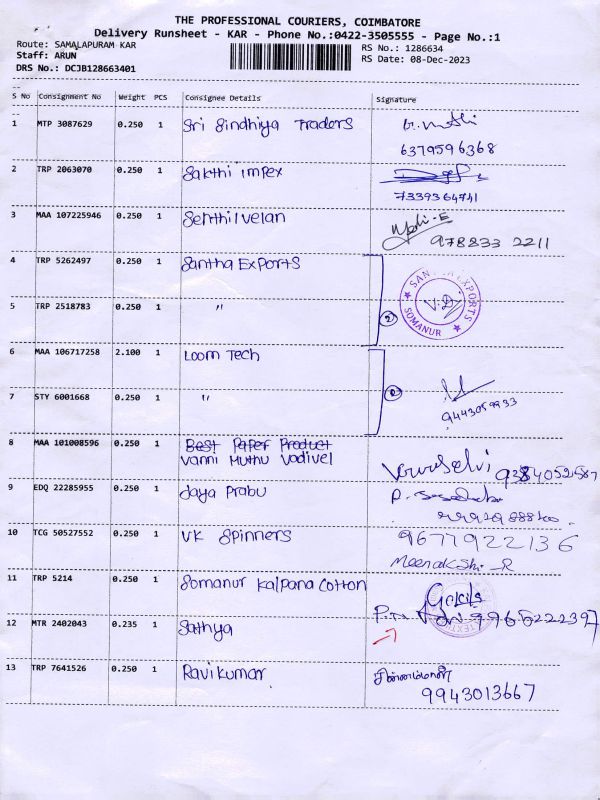 THE PROFESSIONAL COURIERS, COIMBATORE
Delivery Runsheet - KAR - Phone No.:0422-3505555 - Page No.:1
Route: SAMALAPURAM KAR RS No.: 1286634
Staff: ARUN RS Date: 08-Dec-2023
DRS No.: DCJB128663401
S No Consignment No Weight PCS Consignee Details Signature
1 MTP 3087629 0.250 1 Sri Sindhiya Traders
6379596368
2 TRP 2063070 0.250 1 Sakthi impex
7339364741
3 MAA 107225946 0.250 1 Senthilvelan
978833 2211
4 TRP 5262497 0.250 1 Santha Exports
SANTHA EXPORTS
SOMANUR
5 TRP 2518783 0.250 1 "
2
6 MAA 106717258 2.100 1 Loom Tech
7 STY 6001668 0.250 1 "
9443059933
8 MAA 101008596 0.250 1 Best Paper Product
Vanni Muthu Vadivel
9 EDQ 22285955 0.250 1 Jaya Prabu
10 TCG 50527552 0.250 1 VK Spinners 9677922136
Meenakshi-R
11 TRP 5214 0.250 1 Somanur Kalpana Cotton
12 MTR 2402043 0.235 1 Sathya
13 TRP 7641526 0.250 1 Ravikumar
9943013667